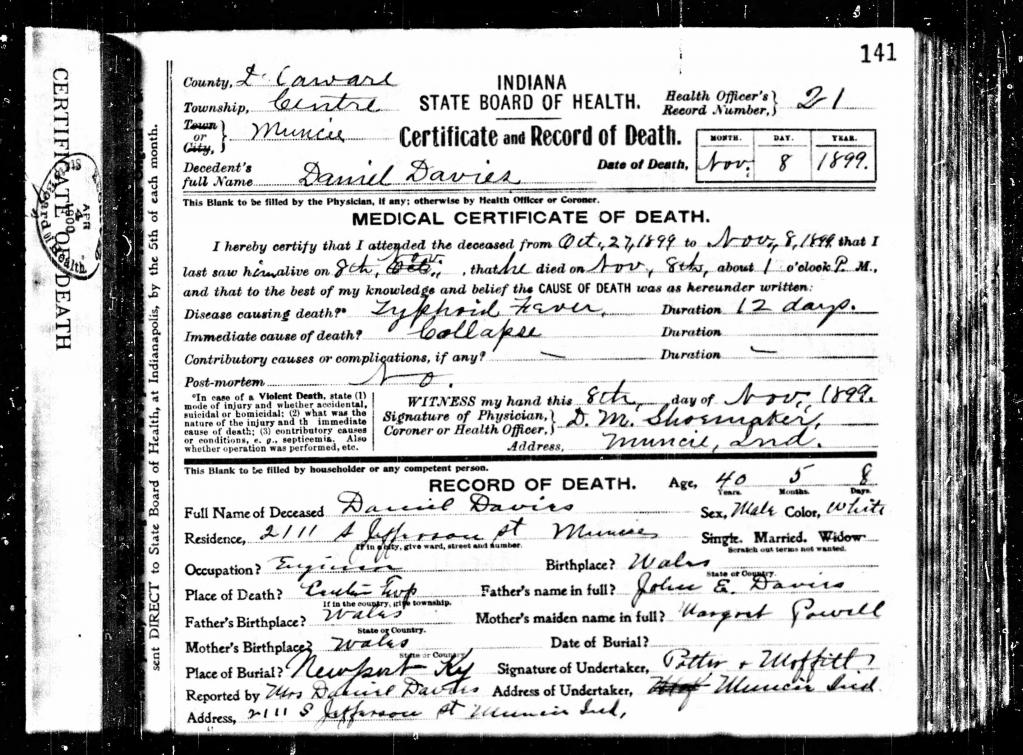 141
County, Delaware
Township, Centre
Town or City, } Muncie
INDIANA
STATE BOARD OF HEALTH.
Health Officer's Record Number, } 21
Certificate and Record of Death.
Decedent's full Name Daniel Davies
Date of Death,
MONTH. DAY. YEAR.
Nov. 8 1899.
This Blank to be filled by the Physician, if any; otherwise by Health Officer or Coroner.
MEDICAL CERTIFICATE OF DEATH.
I hereby certify that I attended the deceased from Oct. 27, 1899 to Nov, 8, 1899 that I
last saw him alive on 8th, Oct. Nov., that he died on Nov, 8th, about 1 o'clock P. M.,
and that to the best of my knowledge and belief the CAUSE OF DEATH was as hereunder written:
Disease causing death?* Typhoid Fever. Duration 12 days.
Immediate cause of death? Collapse Duration
Contributory causes or complications, if any? — Duration —
Post-mortem No.
*In case of a Violent Death, state (1)
mode of injury and whether accidental,
suicidal or homicidal; (2) what was the
nature of the injury and th immediate
cause of death; (3) contributory causes
or conditions, e. g., septicemia. Also
whether operation was performed, etc.
WITNESS my hand this 8th, day of Nov, 1899.
Signature of Physician, Coroner or Health Officer, } D. M. Shoemaker,
Address, Muncie, Ind.
This Blank to be filled by householder or any competent person.
RECORD OF DEATH.
Age, 40 5 8
Years. Months. Days.
Full Name of Deceased Daniel Davies
Sex, Male Color, White
Residence, 2111 S Jefferson St Muncie
If in city, give ward, street and number.
Single. Married. Widow
Scratch out terms not wanted.
Occupation? Engineer
Birthplace? Wales
State or Country.
Place of Death? Center Twp
If in the country, give township.
Father's name in full? John E. Davies
Father's Birthplace? Wales
State or Country.
Mother's maiden name in full? Margret Powell
Mother's Birthplace? Wales
State or Country.
Date of Burial?
Place of Burial? Newport Ky
Signature of Undertaker, Potter & Moffitt
Reported by Mrs Daniel Davies
Address of Undertaker, Muncie Ind
Address, 2111 S Jefferson St Muncie Ind,
sent DIRECT to State Board of Health, at Indianapolis, by the 5th of each month.
CERTIFICATE OF DEATH
APR
4
1900
Board of Health